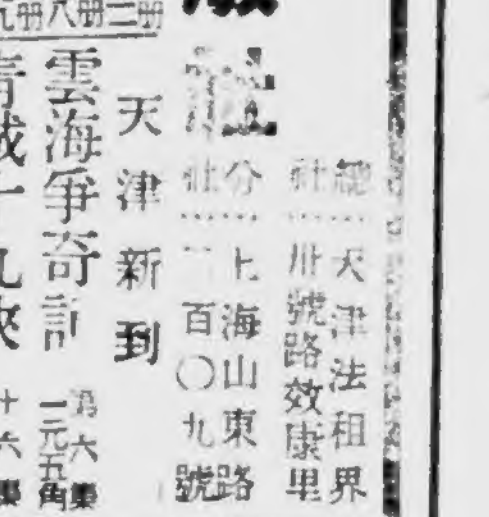 總社……天津法租界
卅號路效康里
分社……上海山東路
二百〇九號
天津新到
雲海爭奇記
第六集
一元五角
青城十九俠
十六集
九册八册二册